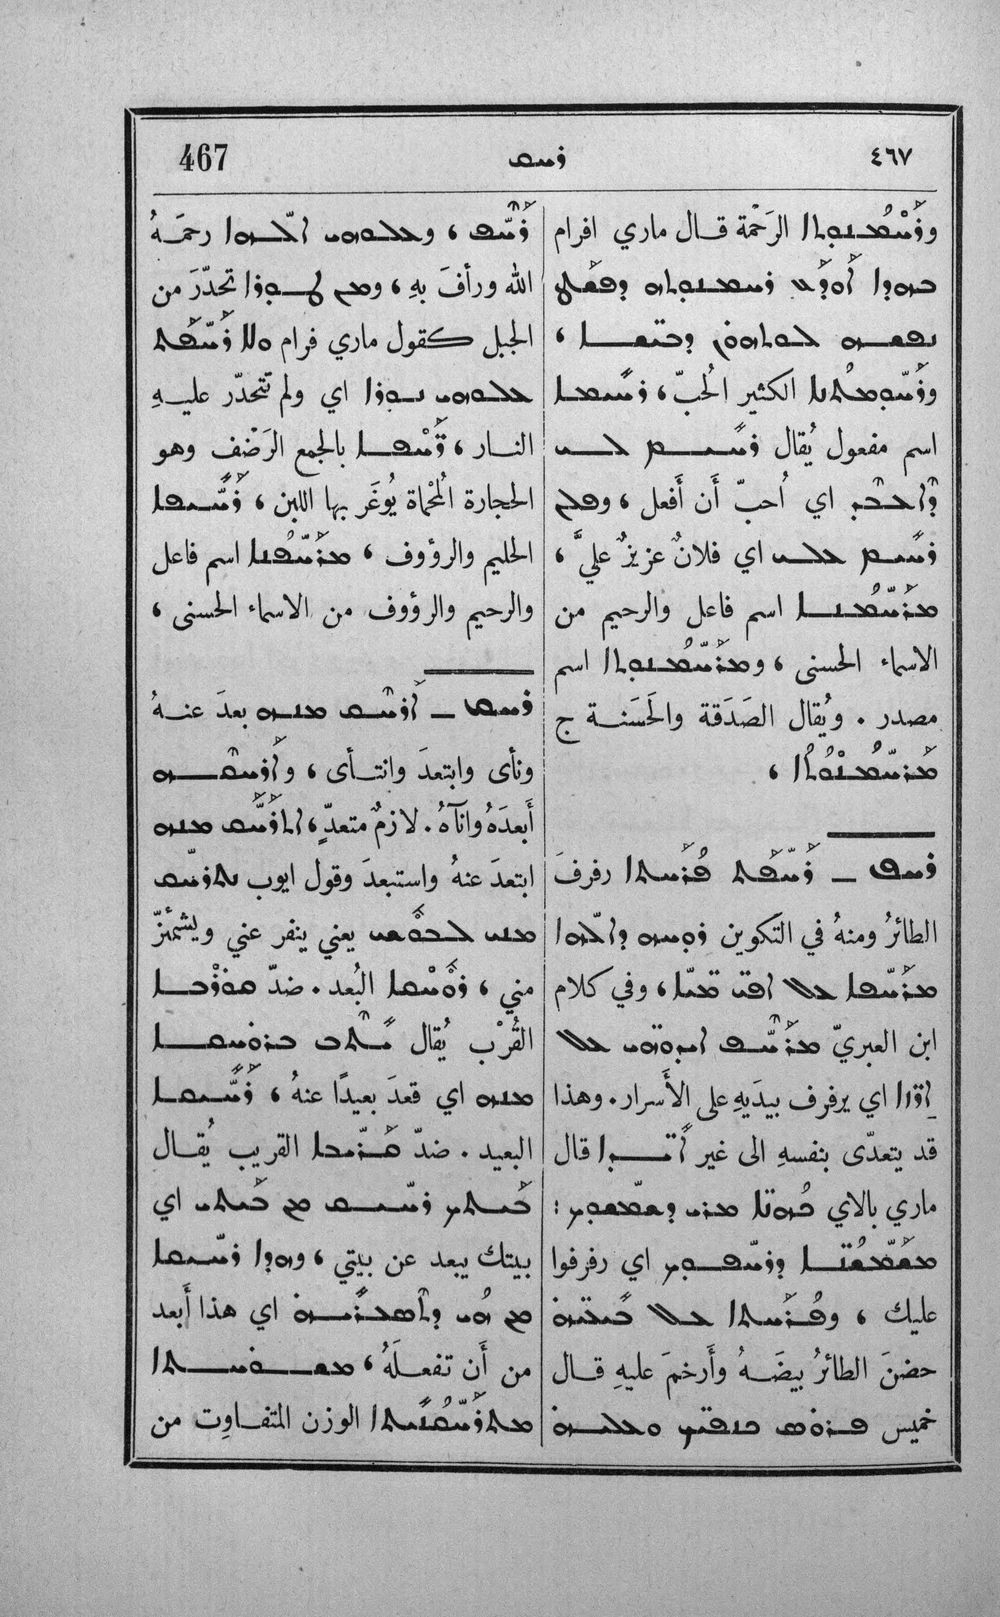 ٤٦٧
ܪܚܩ
467
ܘܪܰܚܡܳܢܘܬܐ الرَحْمَة قـال ماري افرام
ܪܚܡܢܘܬܗ
ܘܪܰܚܡܬܳܢܐ الكثير الحُبّ ، ܪܚܝܡܐ
اسم مفعول يُقال ܪܚܝܡ ܠܝ
ܕܐܥܒܕ اي اُحبّ أَن أَفعل ، ܘܦܠܢ
ܪܚܝܡ ܥܠܝ اي فلانٌ عزيزٌ عليَّ ،
ܡܪܰܚܡܳܢܐ اسم فاعل والرحيم من
الاسماء الحسنى ، ܘܡܪܰܚܡܳܢܘܬܐ اسم
مصدر . ويُقال الصَدَقة والحَسَنة ج
ܪܚܦ ـ ܪܰܚܦܰܬ ܦܳܪܰܚܬܐ رفرفَ
الطائرُ ومنهُ في التكوين ܪܘܚܗ ܕܐܠܗܐ
ܡܪܰܚܦܐ ܥܠ ܐܦܝ ܡܝܐ، وفي كلام
ابن العبريّ ܡܪܰܚܦ ܐܝܕܘܗܝ ܥܠ
ܐܪܙܐ اي يرفرف بيدَيهِ على الأَسرار. وهذا
قد يتعدّى بنفسهِ الى غير ܐܝܕܐ قال
ماري بالاي ܟܳܗܢܐ ܡܪܝ ܕܫܡܫܘܟ :
ܡܫܡܫܳܢܐ ܕܪܚܦܘܟ اي رفرفوا
عليك ، ܘܦܳܪܰܚܬܐ ܥܠ ܒܝܥܝܗ
حضنَ الطائرُ بيضَـهُ وأَرخمَ عليهِ قـال
خميس ܦܪܘܣ ܟܢܦܝܟ
ܪܰܚܦ ، ܘܥܠܘܗܝ ܐܠܗܐ رحمَـهُ
الله ورأفَ بهِ ، ܘܡܢ ܛܘܪܐ تحدّرَ من
الجبل كقول ماري فرام ܘܠܐ ܪܰܚܦܰܬ
ܥܠܘܗܝ ܢܘܪܐ اي ولم تتحدّر عليـهِ
النـار ، ܪܰܚܦܐ بالجمع الرَضْف وهو
الحجارة المُحْماة يُوغَر بها اللبن ، ܪܰܚܝܦܐ
الحليم والرؤوف ، ܡܪܰܚܦܳܢܐ اسم فاعل
والرحيم والرؤوف من الاسماء الحسنى ،
ܪܚܩ ـ ܐܰܪܚܩ ܡܢܗ بعدَ عنـهُ
ونأى وابتعدَ وانتـأى ، ܘܐܰܪܚܩܗ
أَبعدَهُ وانآهُ. لازمٌ متعدٍّ، ܐܬܪܰܚܩ ܡܢܗ
ابتعدَ عنهُ واستبعدَ وقول ايوب ܢܬܪܚܩ
ܡܢܝ يعني ينفر عني ويشمئزّ
مني ، ܪܘܚܩܐ البُعد . ضدّ ܩܘܪܒܐ
القُرْب يُقال ܝܬܒ ܒܪܘܚܩܐ
ܡܢܗ اي قعدَ بعيدًا عنهُ ، ܪܰܚܝܩܐ
البعيد . ضدّ ܩܪܝܒܐ القريب يُقـال
ܒܝܬܟ ܪܚܝܩ ܡܢ ܒܝܬܝ اي
بيتك يبعد عن بيتي ، ܘܗܕܐ ܪܚܝܩܐ
ܡܢ ܗܝ ܕܬܣܥܪܝܗ اي هذا أَبعد
من أَن تفعلَهُ،
ܡܬܪܰܚܩܳܢܝܬܐ الوزن المتفـاوِت من